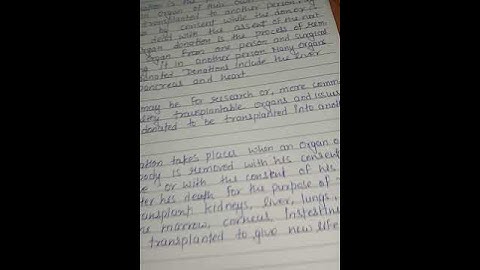 an organ of their own
transplanted to another person
by consent while the donor is
dead with the assent of the next
organ donation is the process of
organ from one person and surgical
it in another person Many organs
donated Donations include the liver
pancreas and heart
may be for research or, more comm
transplantable organs and issues
donated to be transplanted into anot
ation takes places when an organ o
body is removed with his consent
or with the consent of his
ter his death for the purpose of
ransplant kidneys, liver, lungs,
marrow, corneas Instestine
transplanted to give new life